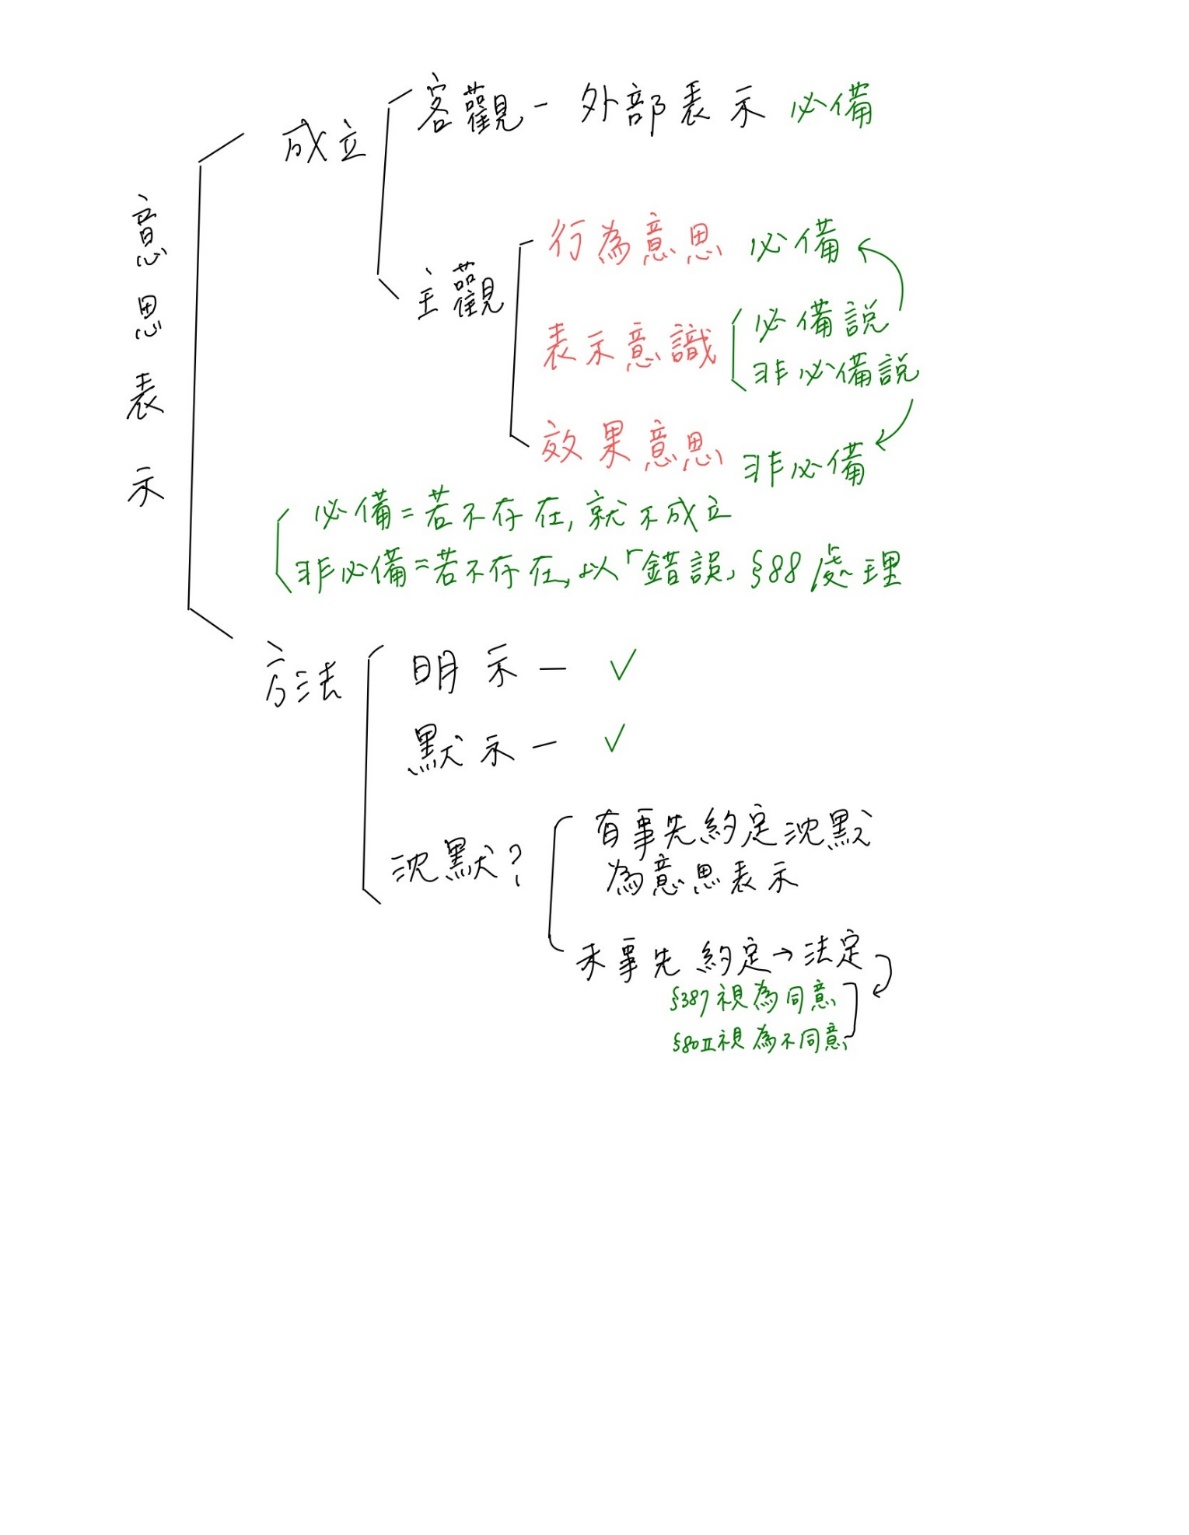 意思表示
成立
客觀 - 外部表示 必備
主觀
行為意思 必備
表示意識
必備說
非必備說
效果意思 非必備
必備=若不存在,就不成立
非必備=若不存在,以「錯誤」§88處理
方法
明示 - ✓
默示 - ✓
沈默?
有事先約定沈默
為意思表示
未事先約定→法定
§387視為同意
§80II視為不同意